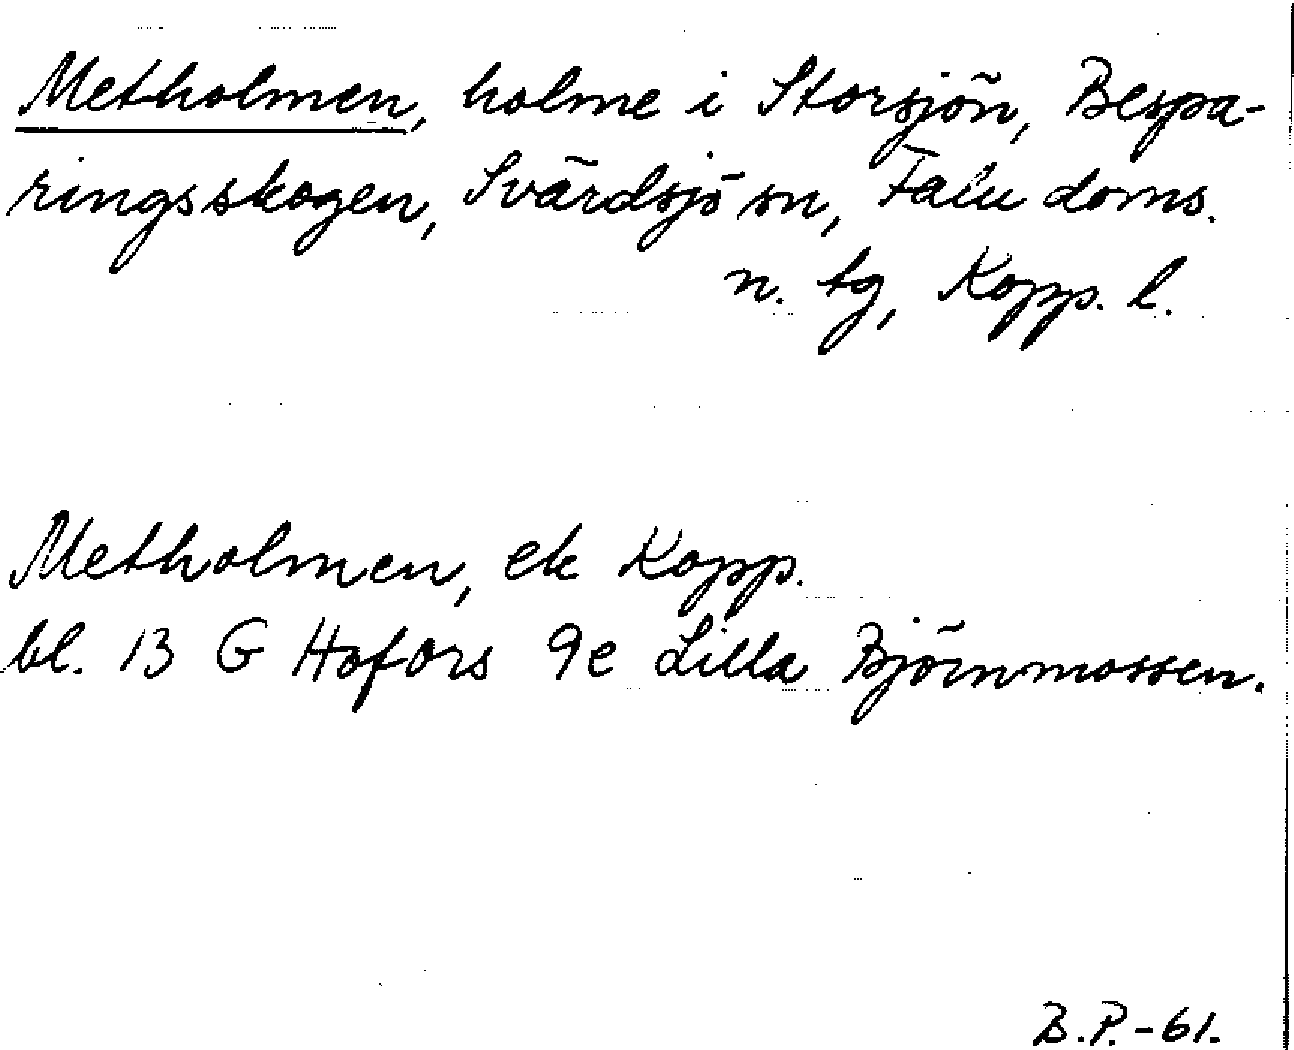 Metholmen, holme i Storsjön, Bespa-
ringsskogen, Svärdsjö sn, Falu doms.
n. tg, Kopp. l.
Metholmen, ek Kopp.
bl. 13 G Hofors 9e Lilla Björnmossen.
B.P.-61.